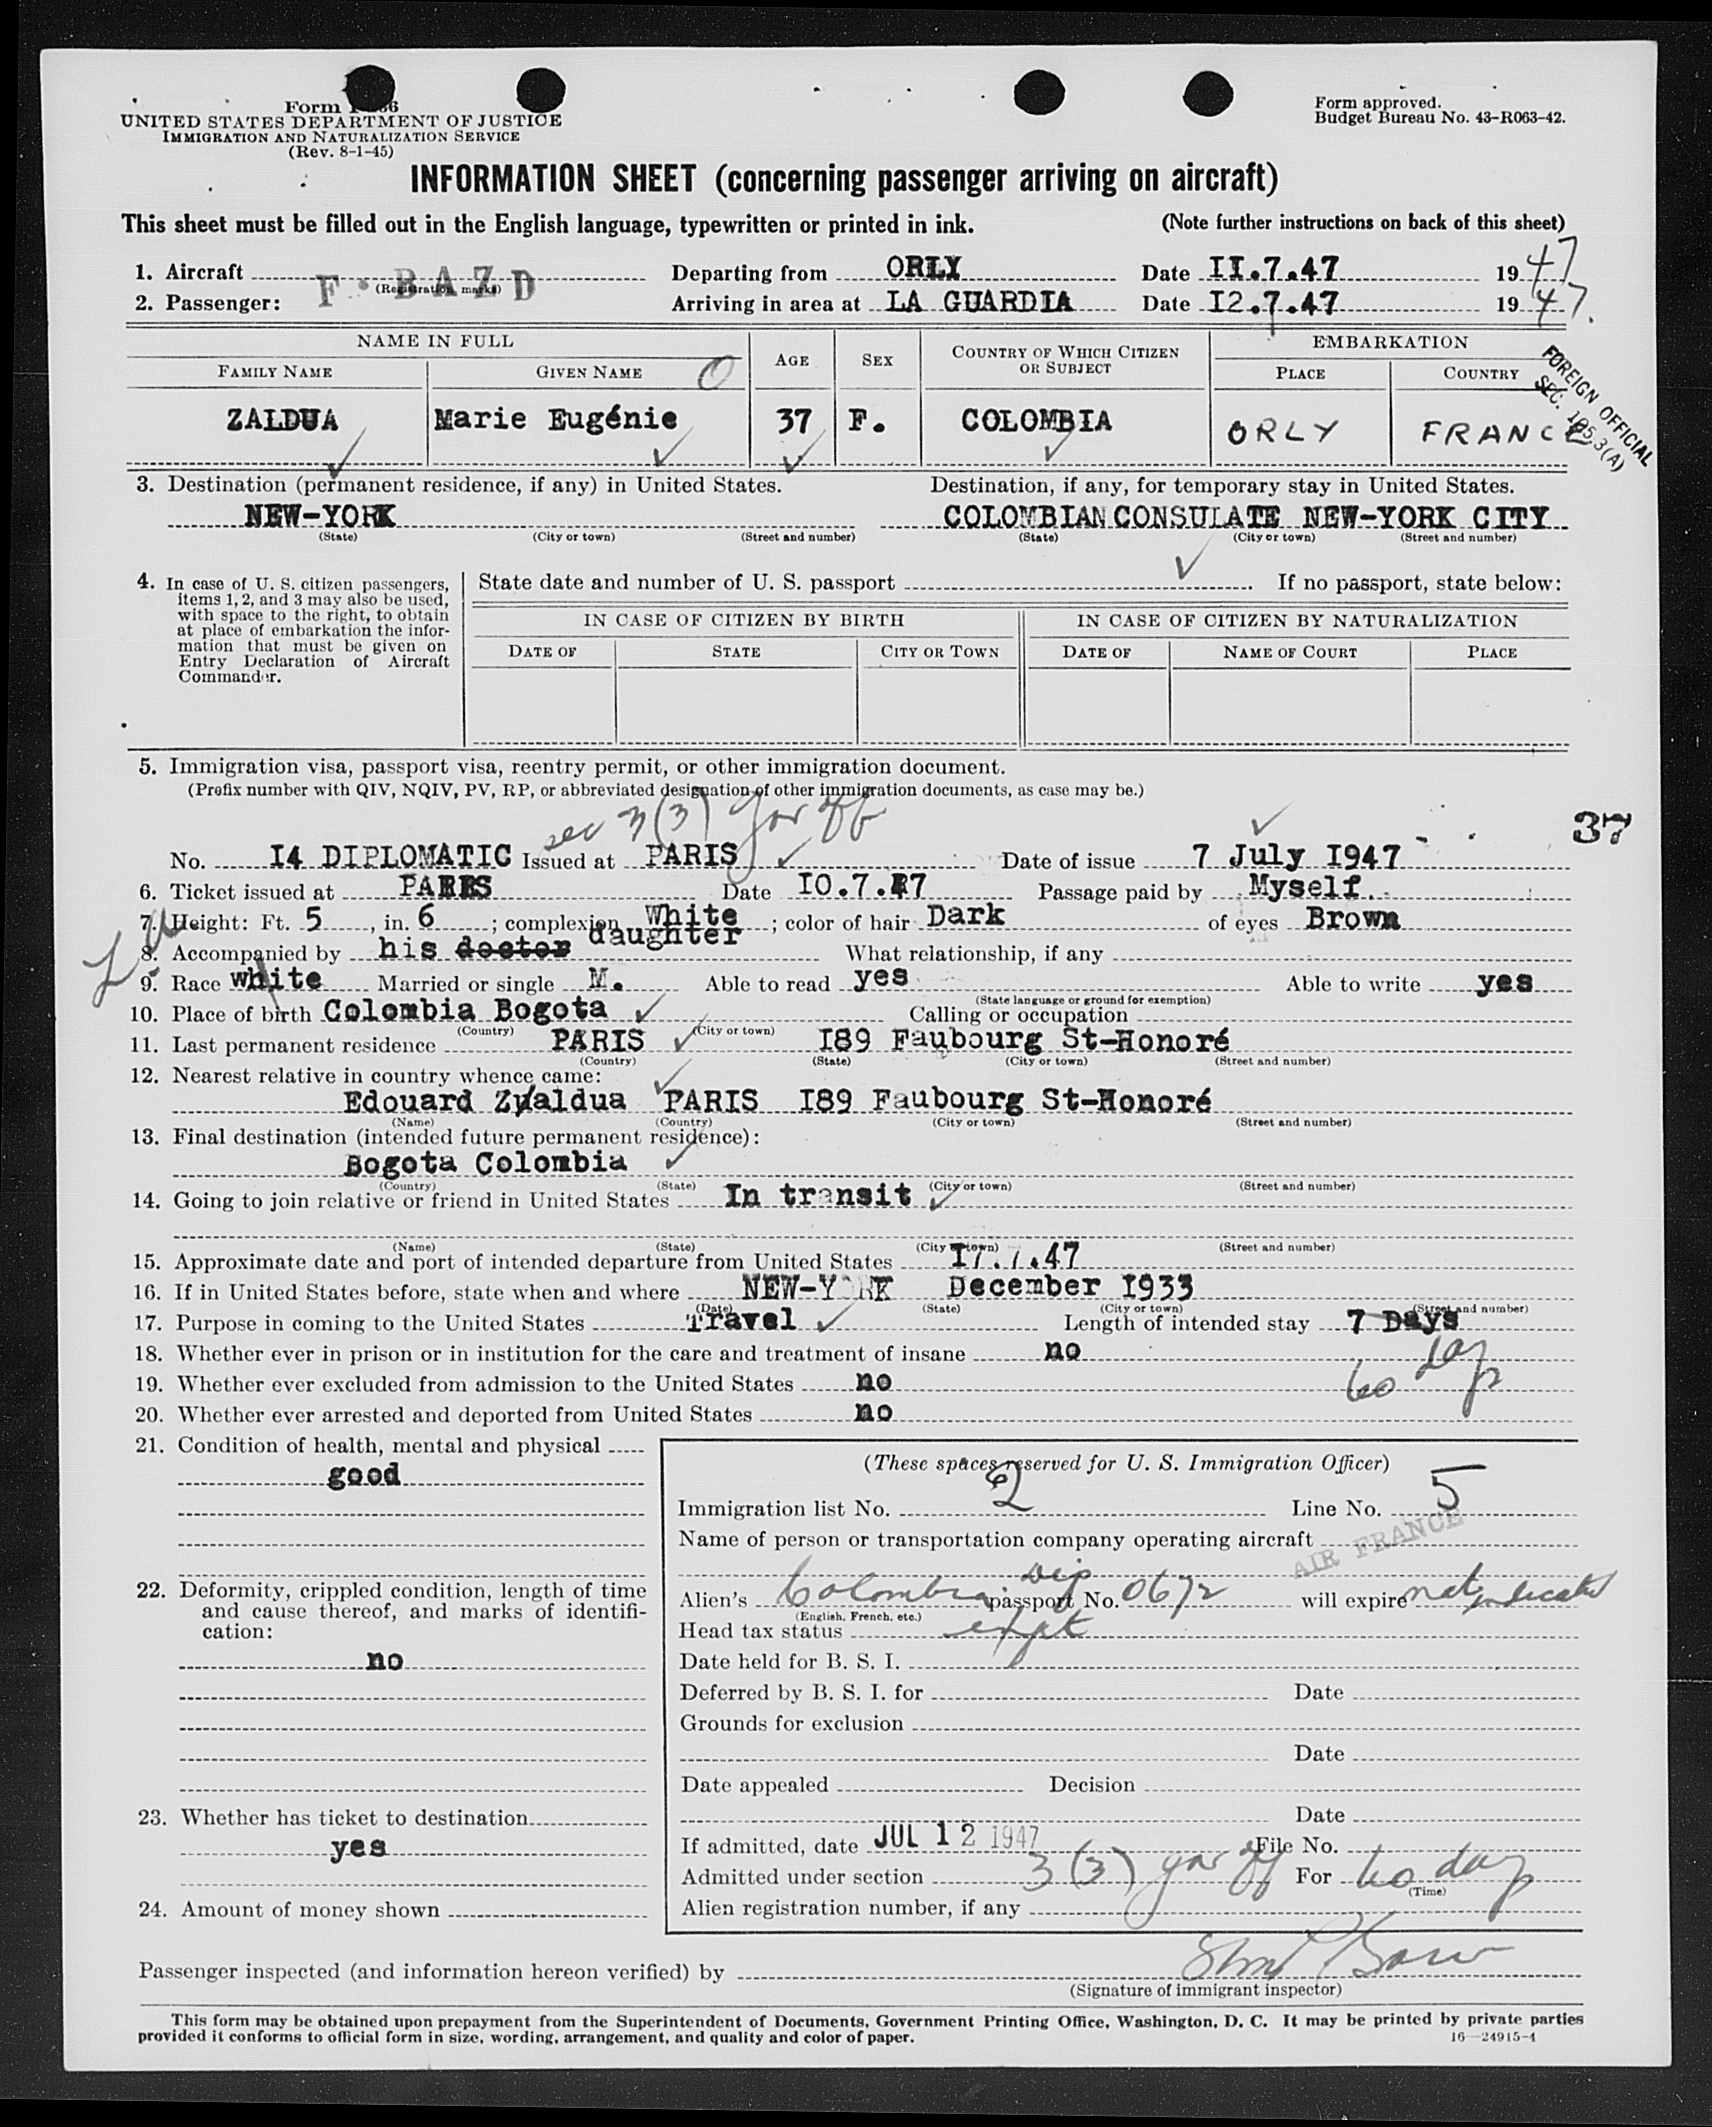 Form
UNITED STATES DEPARTMENT OF JUSTICE
IMMIGRATION AND NATURALIZATION SERVICE
(Rev. 8-1-45)
Form approved.
Budget Bureau No. 43-R063-42.
INFORMATION SHEET (concerning passenger arriving on aircraft)
This sheet must be filled out in the English language, typewritten or printed in ink. (Note further instructions on back of this sheet)
1. Aircraft F-BAZD Departing from ORLY Date II.7.47 1947
(Registration marks)
2. Passenger: Arriving in area at LA GUARDIA Date I2.7.47 1947.
NAME IN FULL AGE SEX COUNTRY OF WHICH CITIZEN OR SUBJECT EMBARKATION
FAMILY NAME GIVEN NAME O PLACE COUNTRY
FOREIGN OFFICIAL
SEC. 195.3(A)
ZALDUA Marie Eugénie 37 F. COLOMBIA ORLY FRANCE
3. Destination (permanent residence, if any) in United States. Destination, if any, for temporary stay in United States.
NEW-YORK COLOMBIAN CONSULATE NEW-YORK CITY
(State) (City or town) (Street and number) (State) (City or town) (Street and number)
4. In case of U. S. citizen passengers, items 1, 2, and 3 may also be used, with space to the right, to obtain at place of embarkation the information that must be given on Entry Declaration of Aircraft Commander.
State date and number of U. S. passport If no passport, state below:
IN CASE OF CITIZEN BY BIRTH IN CASE OF CITIZEN BY NATURALIZATION
DATE OF STATE CITY OR TOWN DATE OF NAME OF COURT PLACE
5. Immigration visa, passport visa, reentry permit, or other immigration document.
(Prefix number with QIV, NQIV, PV, RP, or abbreviated designation of other immigration documents, as case may be.)
sec 3(3) gov off
37
No. I4 DIPLOMATIC Issued at PARIS Date of issue 7 July I947
6. Ticket issued at PARIS Date I0.7.47 Passage paid by Myself.
7. Height: Ft. 5, in. 6; complexion White; color of hair Dark of eyes Brown
8. Accompanied by his doctor daughter What relationship, if any
9. Race white Married or single M. Able to read yes Able to write yes
(State language or ground for exemption)
10. Place of birth Colombia Bogota Calling or occupation
(Country) (City or town)
11. Last permanent residence PARIS I89 Faubourg St-Honoré
(Country) (State) (City or town) (Street and number)
12. Nearest relative in country whence came:
Edouard Zaldua PARIS I89 Faubourg St-Honoré
(Name) (Country) (City or town) (Street and number)
13. Final destination (intended future permanent residence):
Bogota Colombia
(Country) (State) (City or town) (Street and number)
14. Going to join relative or friend in United States In transit
(Name) (State) (City or town) (Street and number)
15. Approximate date and port of intended departure from United States I7.7.47
16. If in United States before, state when and where NEW-YORK December I933
(Date) (State) (City or town) (Street and number)
17. Purpose in coming to the United States Travel Length of intended stay 7 Days
18. Whether ever in prison or in institution for the care and treatment of insane no
60 days
19. Whether ever excluded from admission to the United States no
20. Whether ever arrested and deported from United States no
21. Condition of health, mental and physical
good
22. Deformity, crippled condition, length of time and cause thereof, and marks of identification:
no
23. Whether has ticket to destination
yes
24. Amount of money shown
(These spaces reserved for U. S. Immigration Officer)
Immigration list No. 2 Line No. 5
Name of person or transportation company operating aircraft AIR FRANCE
Alien's Colombia Dip passport No. 0672 will expire not indicated
(English, French, etc.)
Head tax status expt
Date held for B. S. I.
Deferred by B. S. I. for Date
Grounds for exclusion
Date
Date appealed Decision
Date
If admitted, date JUL 12 1947 File No.
Admitted under section 3(3) gov off For 60 days
(Time)
Alien registration number, if any
Passenger inspected (and information hereon verified) by
(Signature of immigrant inspector)
This form may be obtained upon prepayment from the Superintendent of Documents, Government Printing Office, Washington, D. C. It may be printed by private parties
provided it conforms to official form in size, wording, arrangement, and quality and color of paper. 16—24915-4